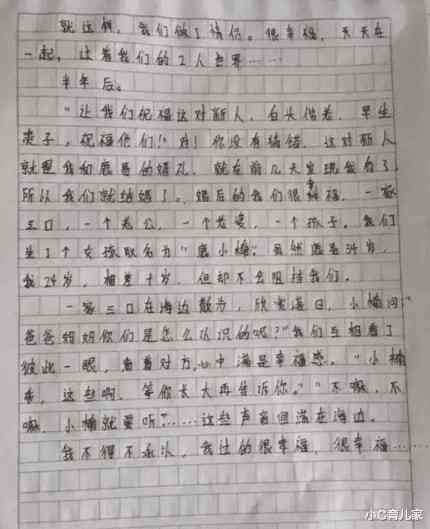 就这样，我们做了情侣。很幸福，天天在
一起，过着我们的2人世界……
半年后。
“让我们祝福这对丽人，白头偕老，早生
贵子，祝福他们！”对！你没有猜错，这对丽人
就是我和鹿晗的婚礼，就在前几天发现我有了，
所以我们就结婚了。婚后的我们很幸福，一家
三口，一个老公，一个老婆，一个孩子。我们
生了个女孩取名为“鹿小楠”，虽然鹿晗34岁，
我24岁，相差十岁，但却不会阻挡我们。
一家三口在海边散步，欣赏落日，小楠问：“
爸爸妈妈你们是怎么认识的呢？”我们互相看了
彼此一眼，看着对方，心中满是幸福感。“小楠
乖，这些啊，等你长大再告诉你。”“不嘛，不
嘛，小楠就要听”……这些声音回荡在海边。
我不得不承认，我过的很幸福，很幸福……
小C育儿家